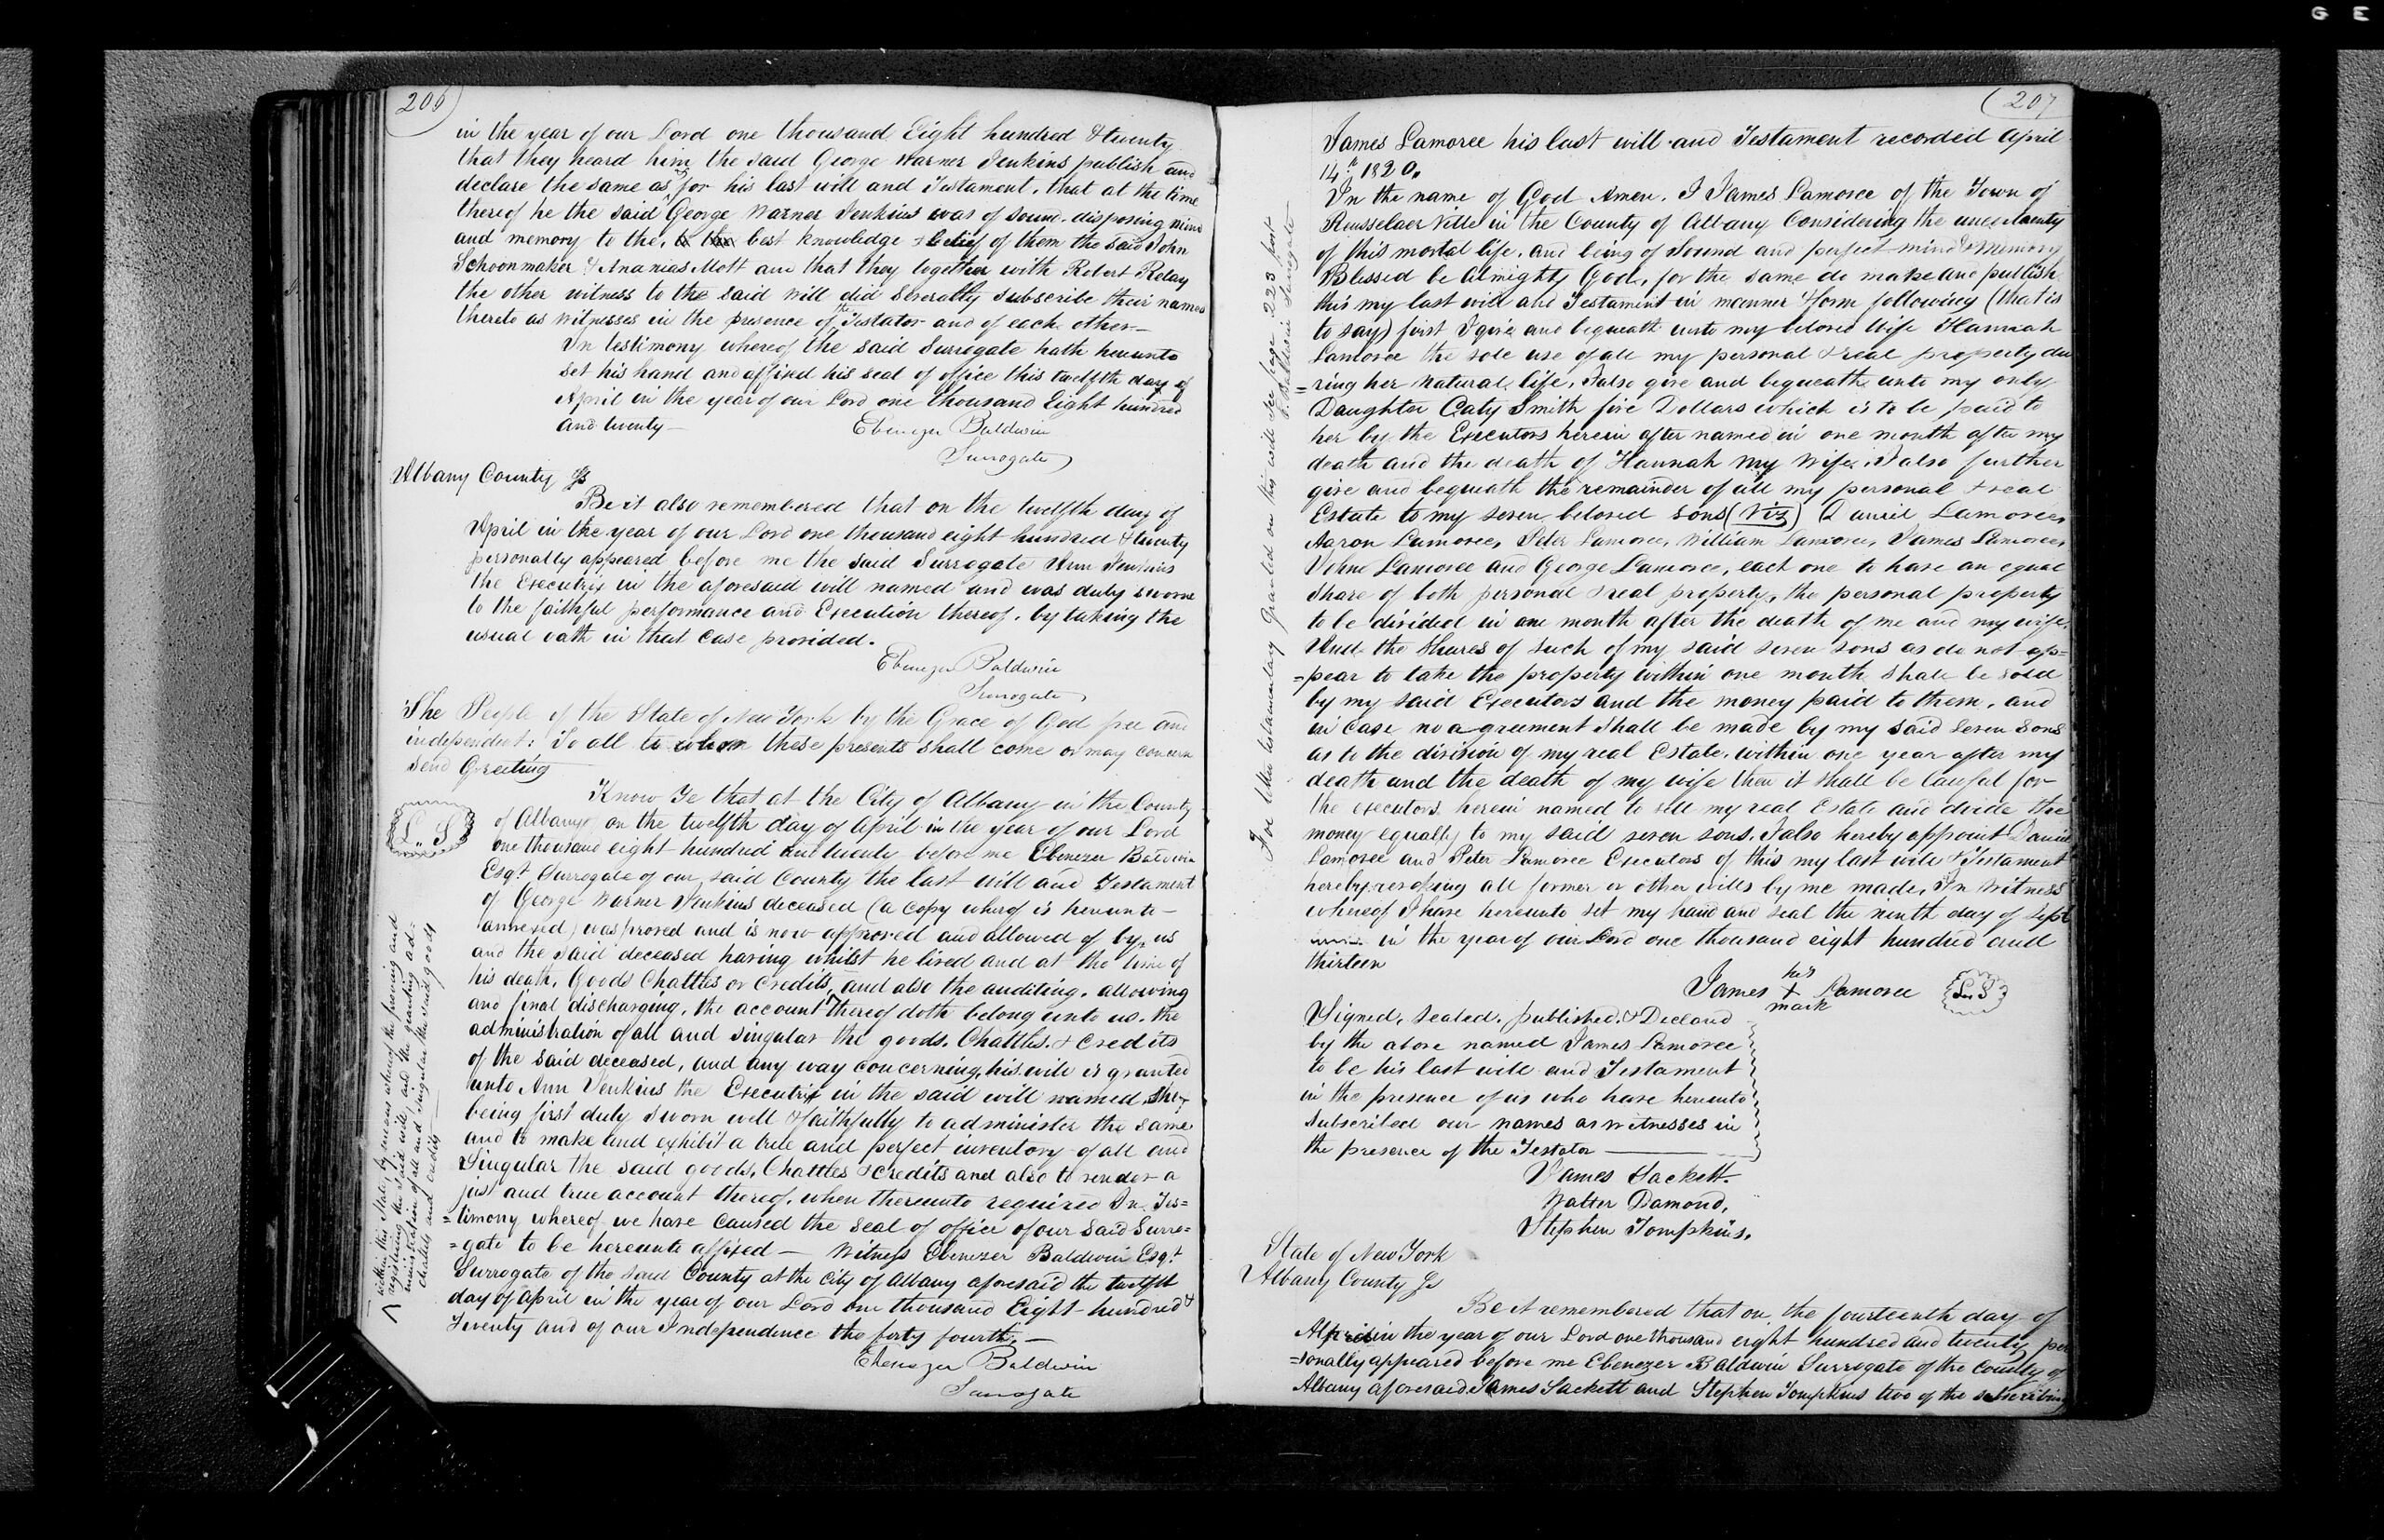 G E
206
in the year of our Lord one thousand Eight hundred & twenty
that they heard him the said George Warner Jenkins publish and
declare the same as & for his last will and Testament, that at the time
thereof he the said George Warner Jenkins was of sound disposing mind
and memory to the, to the best knowledge & belief of them the said John
Schoonmaker & Ananias Mott and that they together with Robert Relay
the other witness to the said will did severally subscribe their names
thereto as witnesses in the presence of the Testator and of each other—
In testimony whereof the said Surrogate hath hereunto
set his hand and affixed his seal of office this twelfth day of
April in the year of our Lord one thousand Eight hundred
and twenty—
Ebenezer Baldwin
Surrogate
Albany County Ss
Be it also remembered that on the twelfth day of
April in the year of our Lord one thousand eight hundred & twenty
personally appeared before me the said Surrogate Ann Jenkins
the Executrix in the aforesaid will named and was duly sworn
to the faithful performance and Execution thereof, by taking the
usual oath in that case provided.
Ebenezer Baldwin
Surrogate
The People of the State of New York by the Grace of God free and
independent: To all to whom these presents shall come or may concern
send Greeting
Know Ye that at the City of Albany in the County
L.. S
of Albany on the twelfth day of April in the year of our Lord
one thousand eight hundred and twenty before me Ebenezer Baldwin
Esqr Surrogate of our said County the last will and Testament
of George Warner Jenkins deceased (a copy wherof is hereunto—
annexed) was proved and is now approved and allowed of by us
and the said deceased having whilst he lived and at the time of
his death, Goods Chattles or Credits, and also the auditing, allowing
and final discharging, the account thereof doth belong unto us, the
administration of all and singular the goods, Chattles, & Credits
of the said deceased, and any way concerning, his will is granted
unto Ann Jenkins the Executrix in the said will named, she
being first duly sworn well & faithfully to administer the same
and to make and exhibit a true and perfect inventory of all and
Singular the said goods, Chattles & credits and also to render a
just and true account thereof, when thereunto required In Tes=
=timony whereof we have caused the seal of office of our said Surro=
=gate to be hereunto affixed — Witness Ebenezer Baldwin Esqr
Surrogate of the said County at the City of Albany aforesaid the twelfth
day of April in the year of our Lord one thousand Eight hundred &
Twenty and of our Independence the forty fourth.—
Ebenezer Baldwin
Surrogate
within this State, by means whereof the proving and
registering the said will, and the granting ad-
ministration of all and singular the said goods
chattels and credits
207
James Lamoree his last will and Testament recorded April
14th 1820.
In the name of God Amen. I James Lamoree of the Town of
RensselaerVille in the County of Albany Considering the uncertainty
of this mortal life, and being of Sound and perfect mind & Memory
Blessed be Almighty God, for the same do make and publish
this my last will and Testament in manner & form following (that is
to say) first I give and bequeath unto my beloved Wife Hannah
Lamoree the sole use of all my personal & real property du
=ring her natural life, I also give and bequeath unto my only
Daughter Caty Smith five Dollars which is to be paid to
her by the Executors herein after named in one month after my
death and the death of Hannah my Wife, I also further
give and bequeath the remainder of all my personal & real
Estate to my seven beloved sons (Viz) Daniel Lamoree,
Aaron Lamoree, Peter Lamoree, William Lamoree, James Lamoree,
John Lamoree and George Lamoree, each one to have an equal
share of both personal & real property, the personal property
to be divided in one month after the death of me and my wife.
And the Shares of such of my said seven sons as do not ap=
=pear to take the property within one month shall be sold
by my said Executors and the money paid to them, and
in case no agreement shall be made by my said seven sons
as to the division of my real Estate, within one year after my
death and the death of my wife then it shall be lawful for
the executors herein named to sell my real Estate and divide the
money equally to my said seven sons. I also hereby appoint Daniel
Lamoree and Peter Lamoree Executors of this my last will & Testament
hereby revoking all former or other wills by me made, In Witness
whereof I have hereunto set my hand and seal the ninth day of Sept
in the year of our Lord one thousand eight hundred and
thirteen
his
James + Lamoree
mark
L.S
Signed, sealed, published, & Declared
by the above named James Lamoree
to be his last will and Testament
in the presence of us who have hereunto
subscribed our names as witnesses in
the presence of the Testator
James Sackett.
Walter Damond,
Stephen Tompkins.
State of New York
Albany County Ss
Be it remembered that on, the fourteenth day of
April in the year of our Lord one thousand eight hundred and twenty per
=sonally appeared before me Ebenezer Baldwin Surrogate of the County of
Albany aforesaid James Sackett and Stephen Tompkins two of the subscribing
For letters testamentary granted on this will see page 223 post
E. Baldwin Surrogate